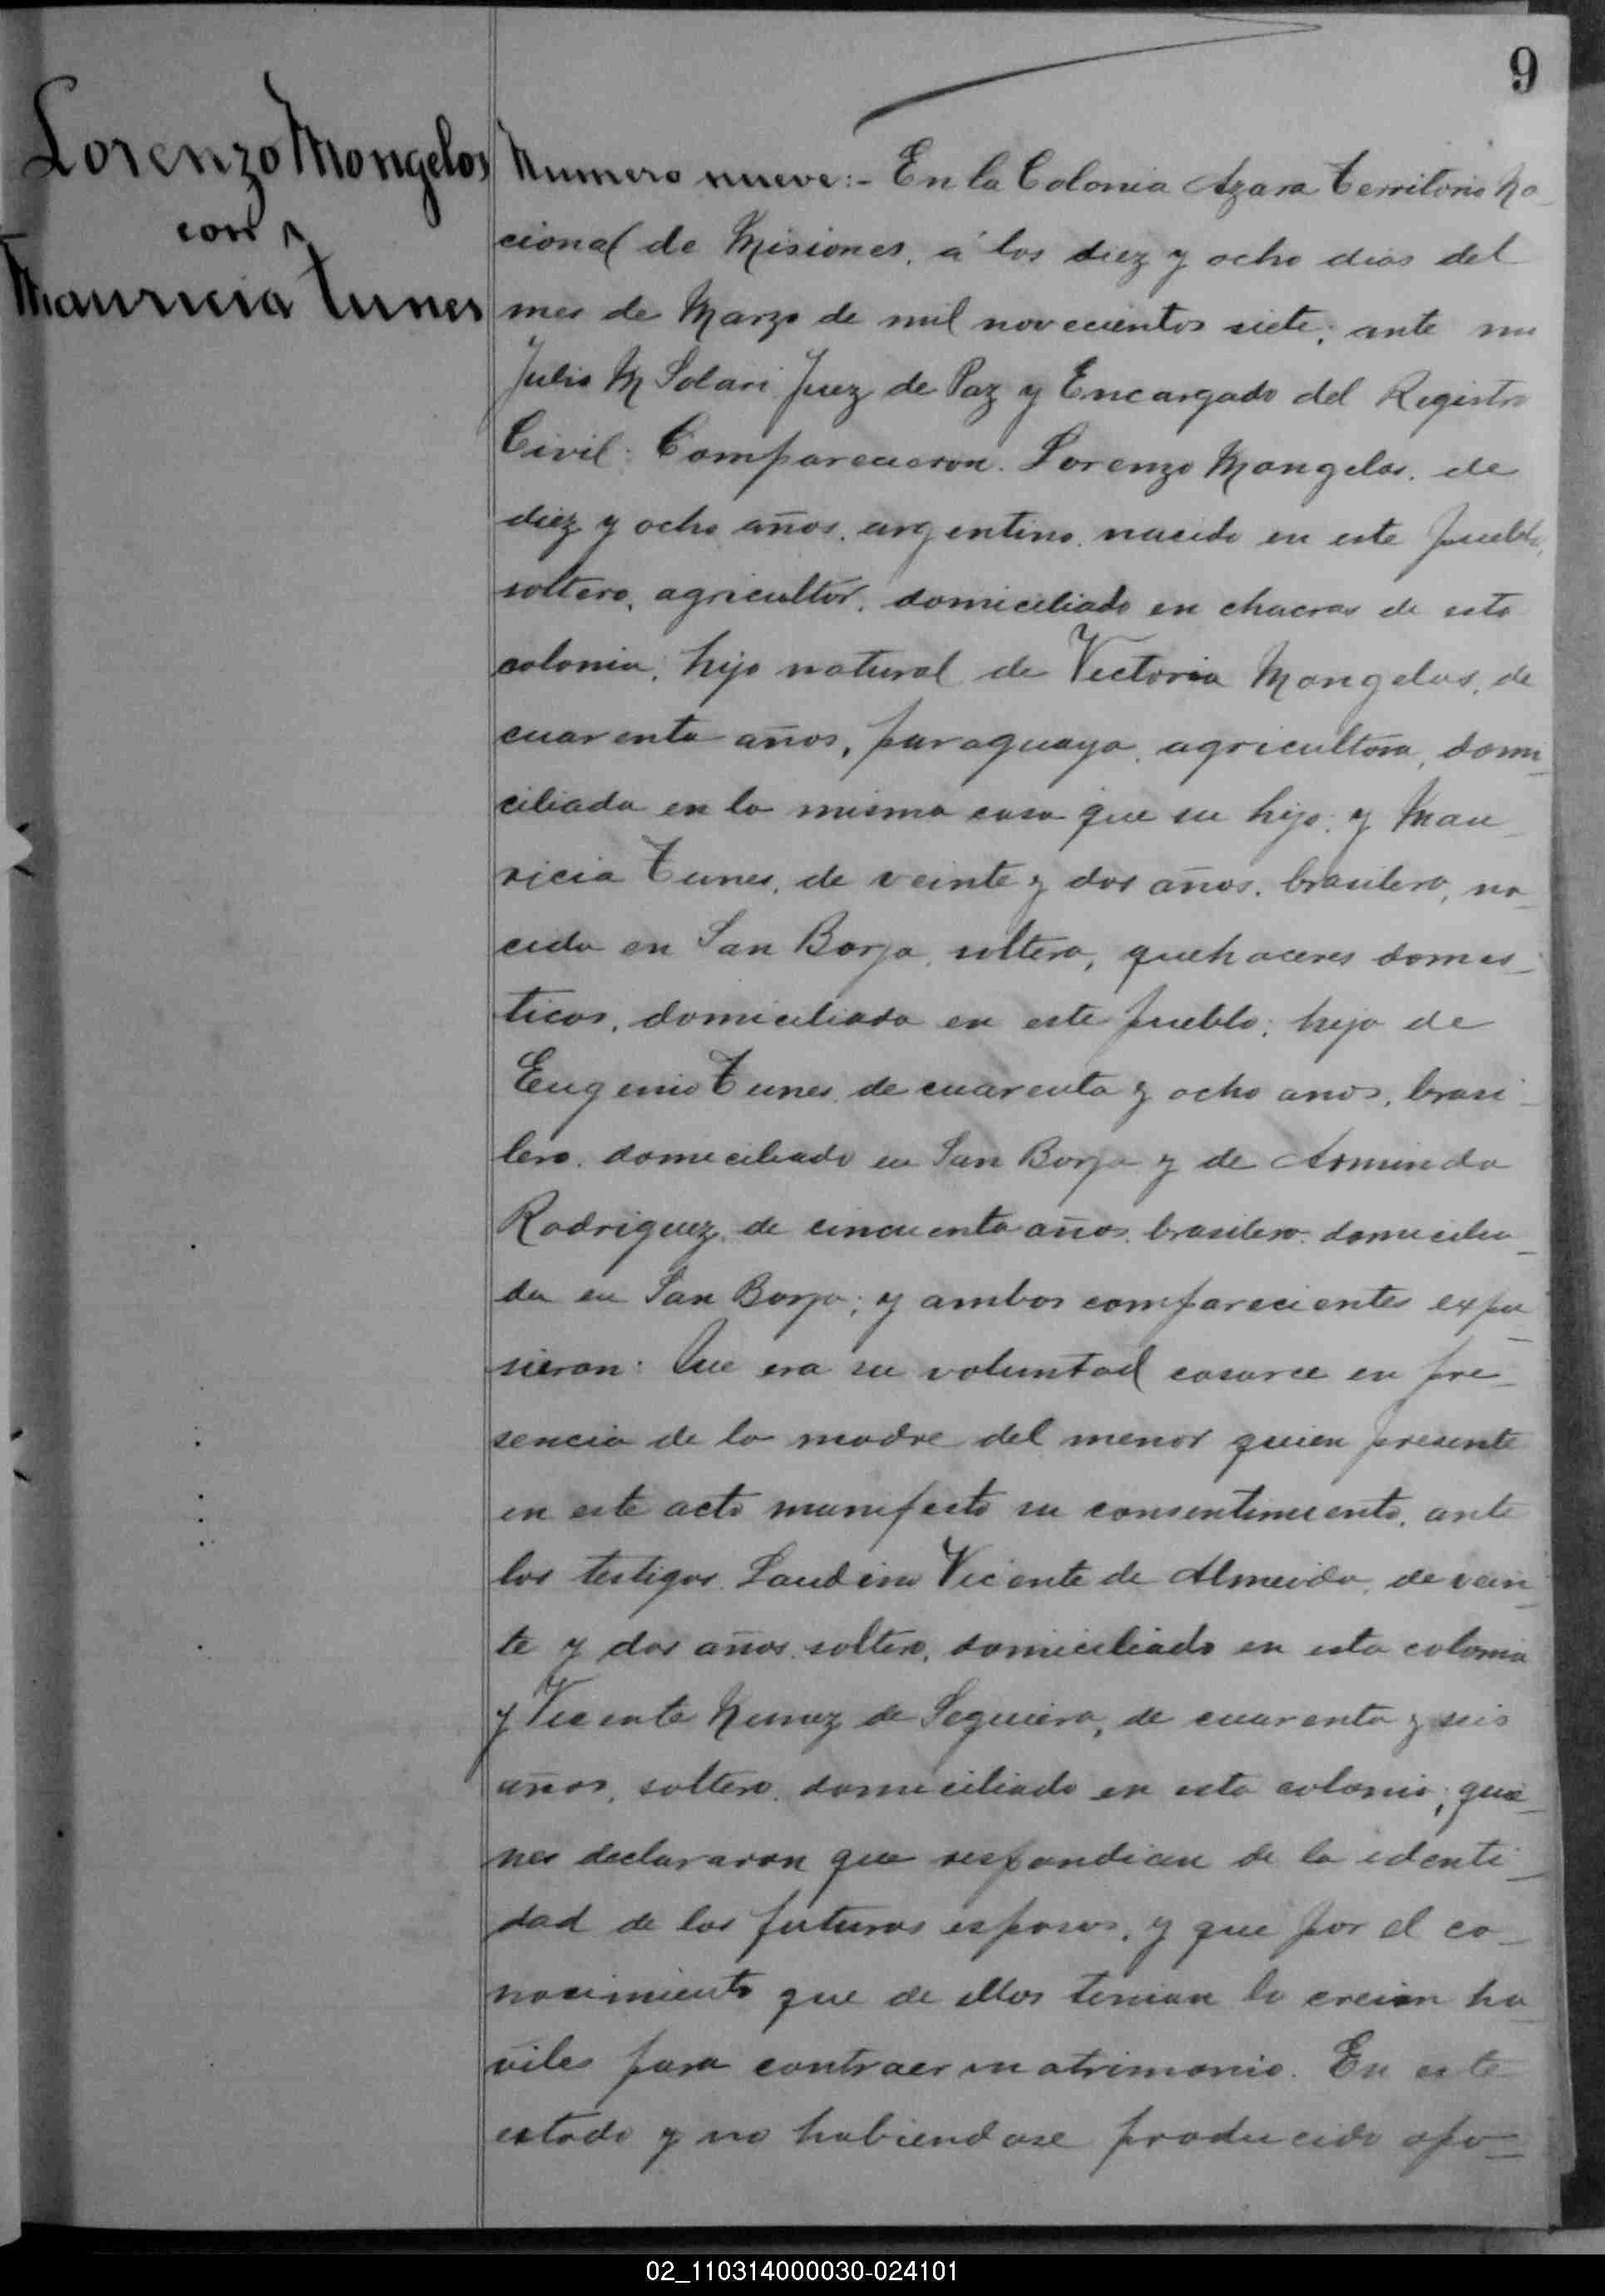 9
Lorenzo Mongelos
con
Mauricia Tunes
Numero nueve:- En la Colonia Azara Territorio Na-
cional de Misiones, á los diez y ocho dias del
mes de Marzo de mil novecientos siete; ante mi
Julio M Solari Juez de Paz y Encargado del Registro
Civil: Comparecieron. Lorenzo Mongelos, de
diez y ocho años, argentino, nacido en este pueblo,
soltero, agricultor, domiciliado en chacras de esta
colonia, hijo natural de Victoria Mongelos, de
cuarenta años, paraguaya, agricultora, domi-
ciliada en la misma casa que su hijo; y Mau-
ricia Tunes, de veinte y dos años, brasilera, na-
cida en San Borja, soltera, quehaceres domes-
ticos, domiciliada en este pueblo; hija de
Eugenio Tunes, de cuarenta y ocho anos, brasi-
lero, domiciliado en San Borja y de Arminda
Rodriguez, de cincuenta años, brasilera, domicilia-
da en San Borja; y ambos comparecientes expu-
sieron: Que era su voluntad casarce en pre-
sencia de la madre del menor quien presente
en este acto manifesto su consentimiento, ante
los testigos Laudino Vicente de Almeida, de vein-
te y dos años, soltero, domiciliado en esta colonia
y Vicente Nunez de Sequiera, de cuarenta y seis
años, soltero, domiciliado en esta colonia; quie-
nes declararon que respondian de la identi-
dad de los futuros esposos, y que por el co-
nocimiento que de ellos tenian lo creian ha-
viles para contraer matrimonio. En este
estado y no habiendose producido opo-
02_110314000030-024101